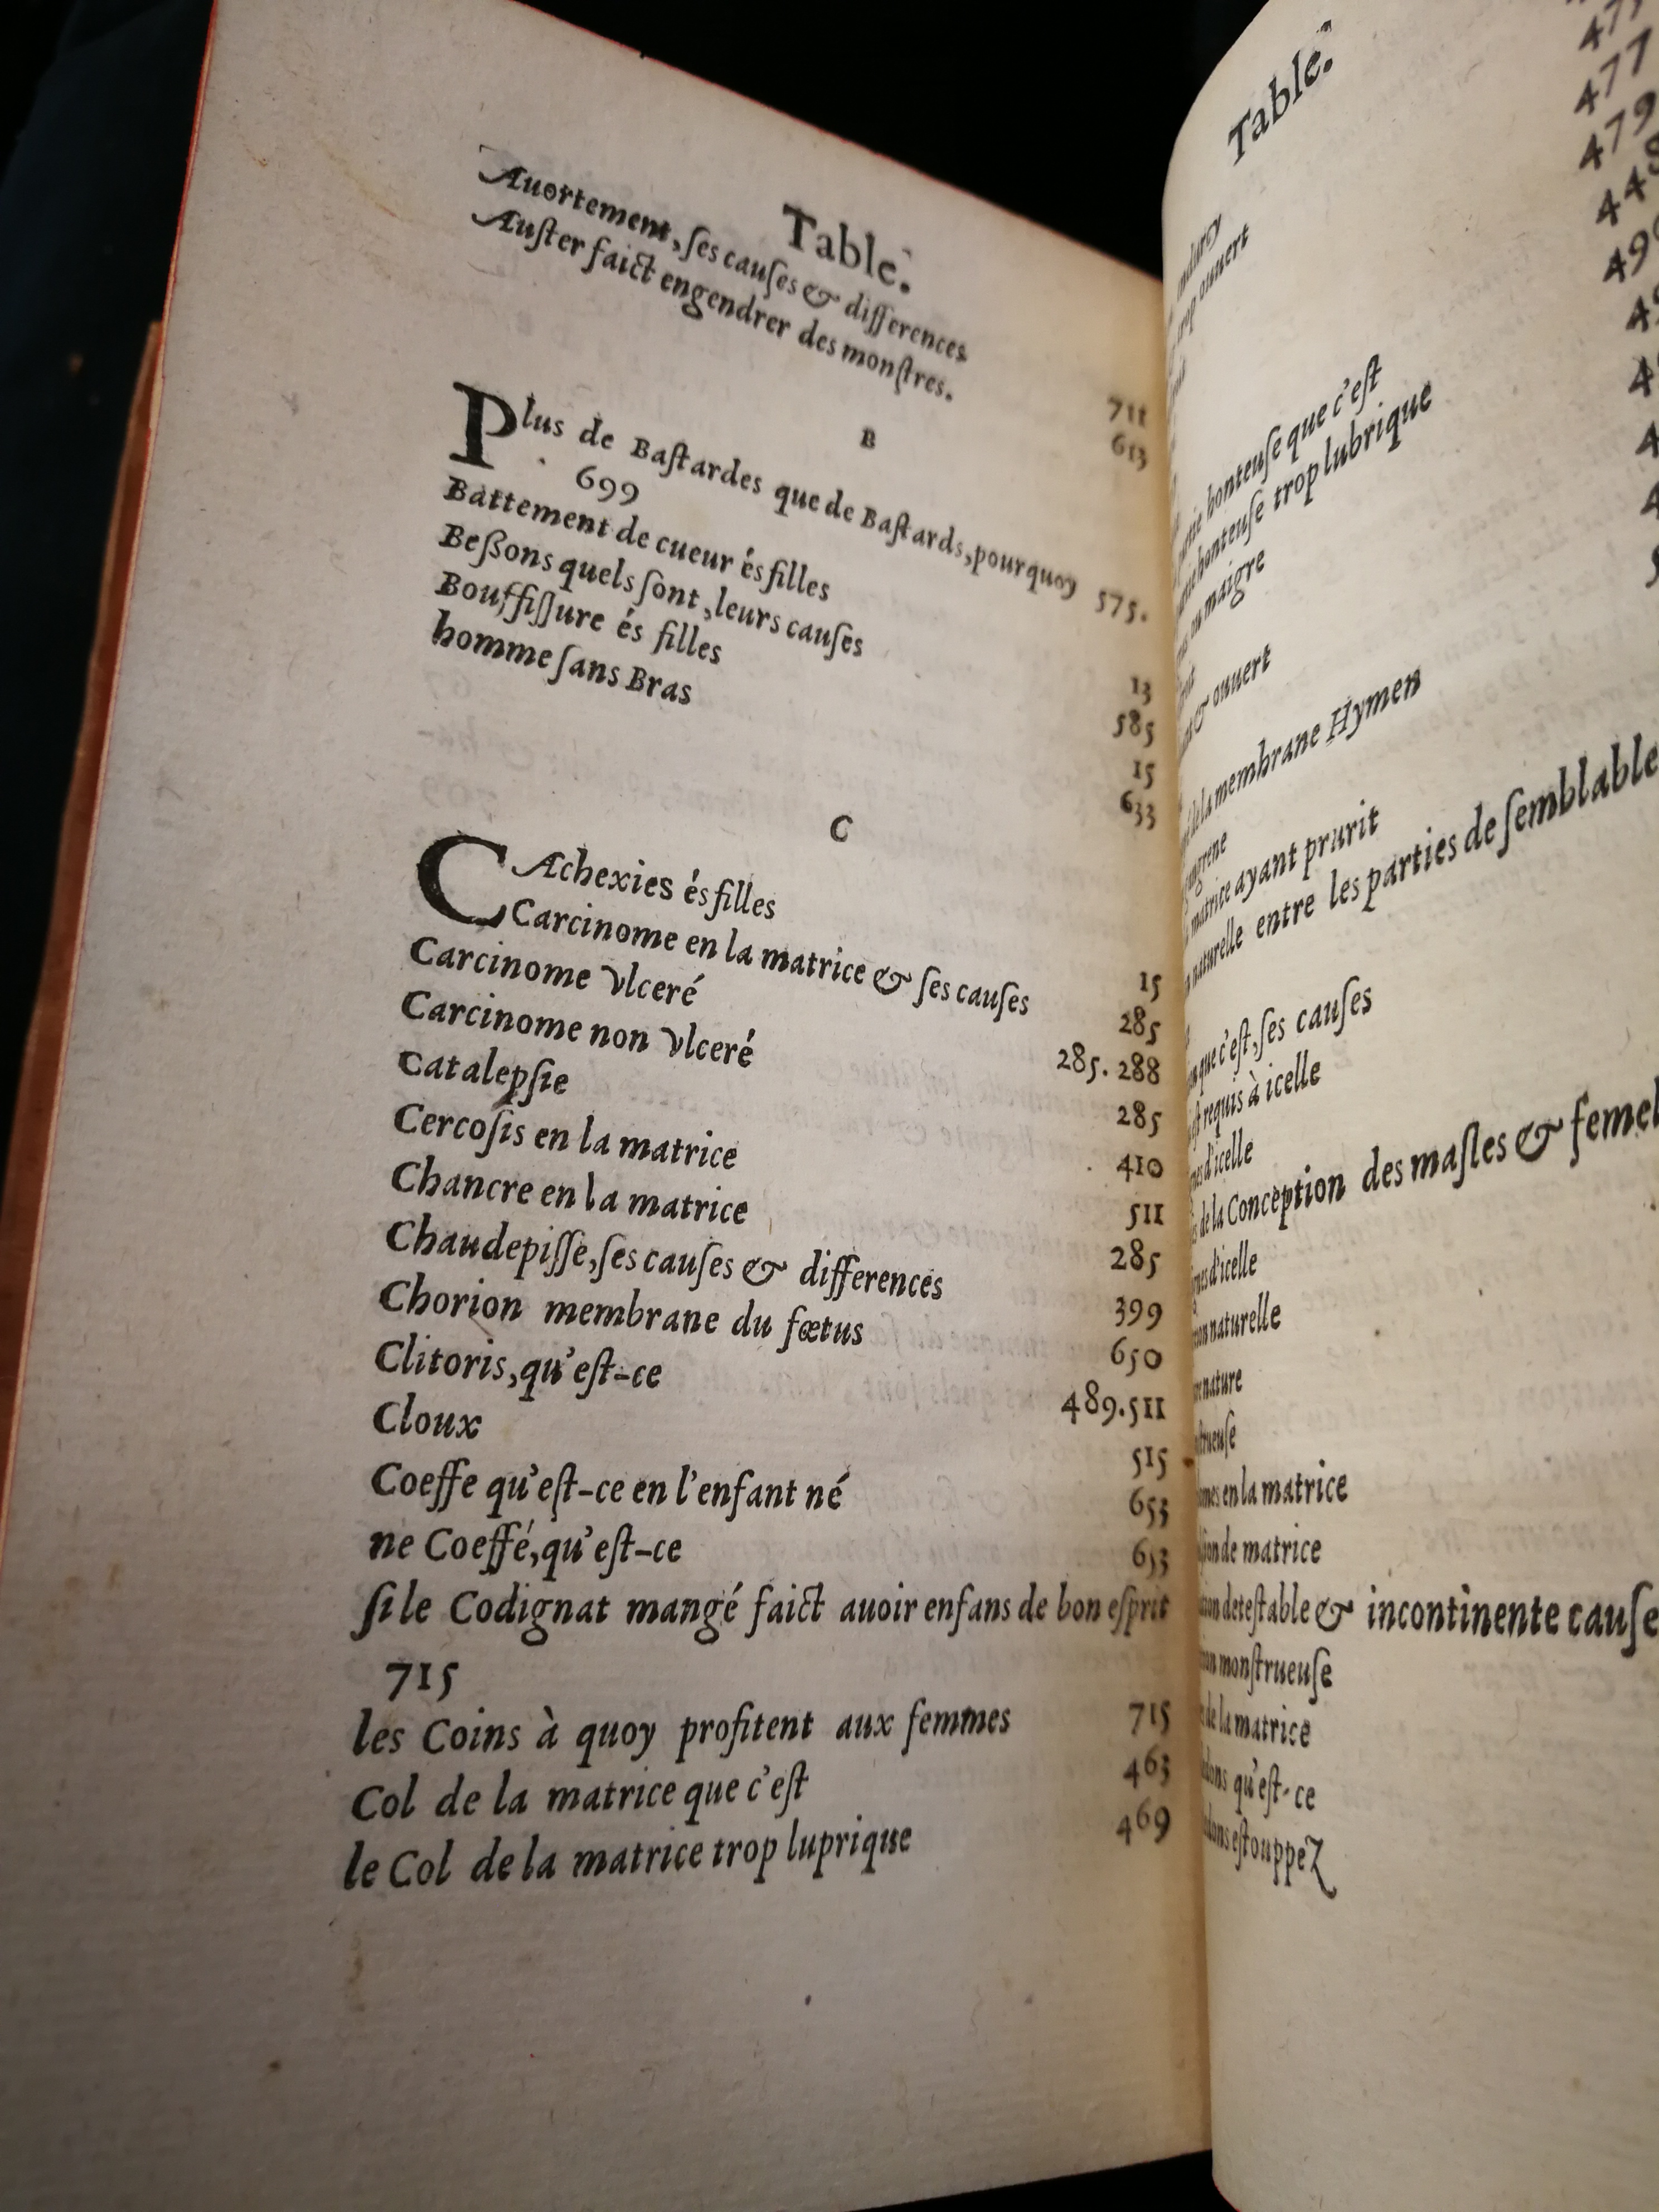 Table.
Auortement, ſes cauſes & differences 711
Auſter faict engendrer des monſtres. 613
B
Plus de Baſtardes que de Baſtards, pourquoy 575.
699
Battement de cueur és filles 13
Beſſons quels ſont, leurs cauſes 585
Bouffiſſure és filles 15
homme ſans Bras 633
C
CAchexies és filles 15
Carcinome en la matrice & ſes cauſes 285
Carcinome vlceré 285. 288
Carcinome non vlceré 285
Catalepſie 410
Cercoſis en la matrice 511
Chancre en la matrice 285
Chaudepiſſe, ſes cauſes & differences 399
Chorion membrane du fœtus 650
Clitoris, qu'eſt-ce 489.511
Cloux 515
Coeffe qu'eſt-ce en l'enfant né 653
ne Coeffé, qu'eſt-ce 653
ſi le Codignat mangé faict auoir enfans de bon eſprit
715
les Coins à quoy profitent aux femmes 715
Col de la matrice que c'eſt 463
le Col de la matrice trop luprique 469
Table.
endurcy 477
trop ouuert 479
honteuſe que c'eſt
honteuſe trop lubrique
ou maigre
& ouuert
de la membrane Hymen
matrice ayant prurit
naturelle entre les parties de ſemblable
que c'eſt, ſes cauſes
eſt requis à icelle
d'icelle
de la Conception des maſles & femel
d'icelle
naturelle
nature
en la matrice
de matrice
deteſtable & incontinente cauſe
monſtrueuſe
de la matrice
qu'eſt-ce
eſtouppez